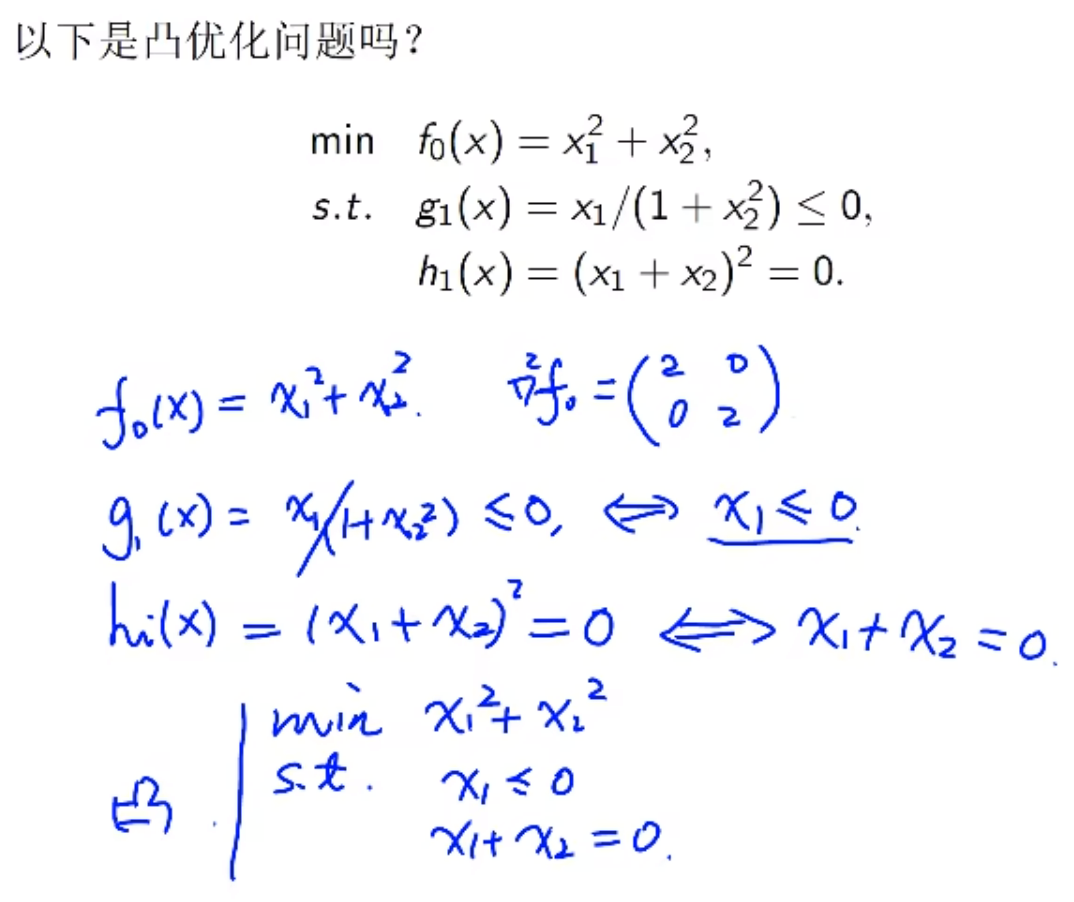 以下是凸优化问题吗?
min f₀(x) = x₁² + x₂²,
s.t. g₁(x) = x₁/(1 + x₂²) ≤ 0,
h₁(x) = (x₁ + x₂)² = 0.
f₀(x) = x₁² + x₂². ∇²f₀ = (2 0
0 2)
g₁(x) = x₁/(1+x₂²) ≤ 0, ⟺ x₁ ≤ 0.
hi(x) = (x₁+x₂)² = 0 ⟺ x₁+x₂ = 0.
min x₁² + x₂²
s.t. x₁ ≤ 0
凸. x₁+x₂ = 0.